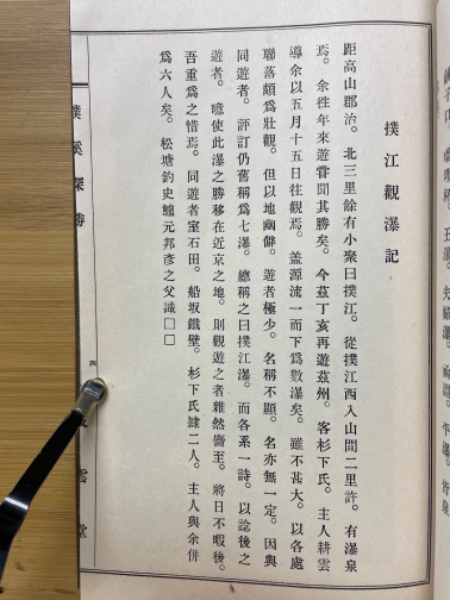 撲江觀瀑記
距高山郡治。北三里餘有小聚曰撲江。從撲江西入山間二里許。有瀑泉
焉。余徃年來遊甞聞其勝矣。今茲丁亥再遊茲州。客杉下氏。主人耕雲
導余以五月十五日往觀焉。盖源流一而下爲數瀑矣。雖不甚大。以各處
聯落頗爲壯觀。但以地幽僻。遊者極少。名稱不顯。名亦無一定。因與
同遊者。評訂仍舊稱爲七瀑。總稱之曰撲江瀑。而各系一詩。以諗後之
遊者。噫使此瀑之勝移在近京之地。則觀遊之者雜然麕至。將日不暇後。
吾重爲之惜焉。同遊者室石田。船坂鐵壁。杉下氏隷二人。主人與余併
爲六人矣。松塘釣史鱸元邦彦之父識□□
撲溪探勝
四
雲
堂